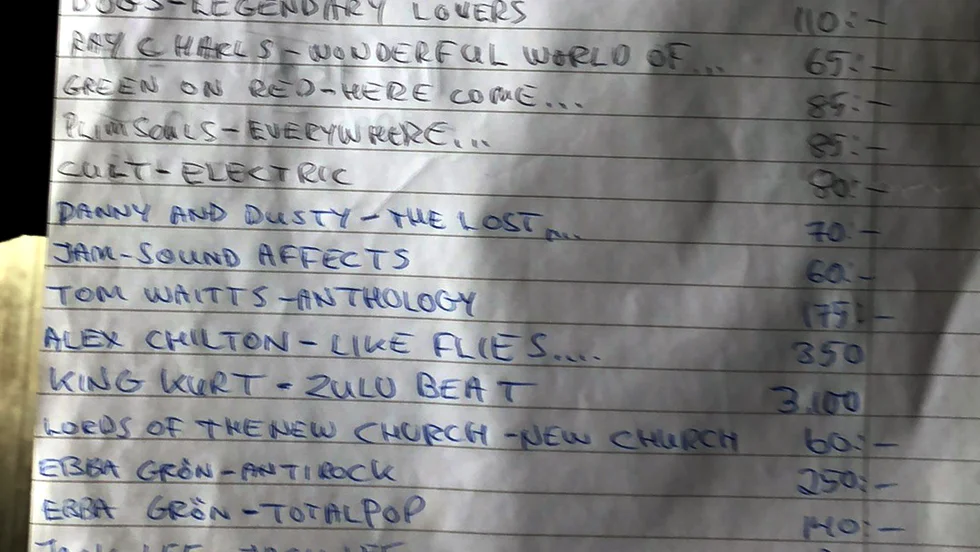 DOGS-LEGENDARY LOVERS 110:-
RAY CHARLS-WONDERFUL WORLD OF... 65:-
GREEN ON RED-HERE COME... 85:-
PLIMSOULS-EVERYWHERE... 85:-
CULT-ELECTRIC 80:-
DANNY AND DUSTY-THE LOST... 70:-
JAM-SOUND AFFECTS 60:-
TOM WAITTS-ANTHOLOGY 175:-
ALEX CHILTON-LIKE FLIES.... 350
KING KURT-ZULU BEAT 3.100
LORDS OF THE NEW CHURCH-NEW CHURCH 60:-
EBBA GRÖN-ANTIROCK 250:-
EBBA GRÖN-TOTALPOP 140:-